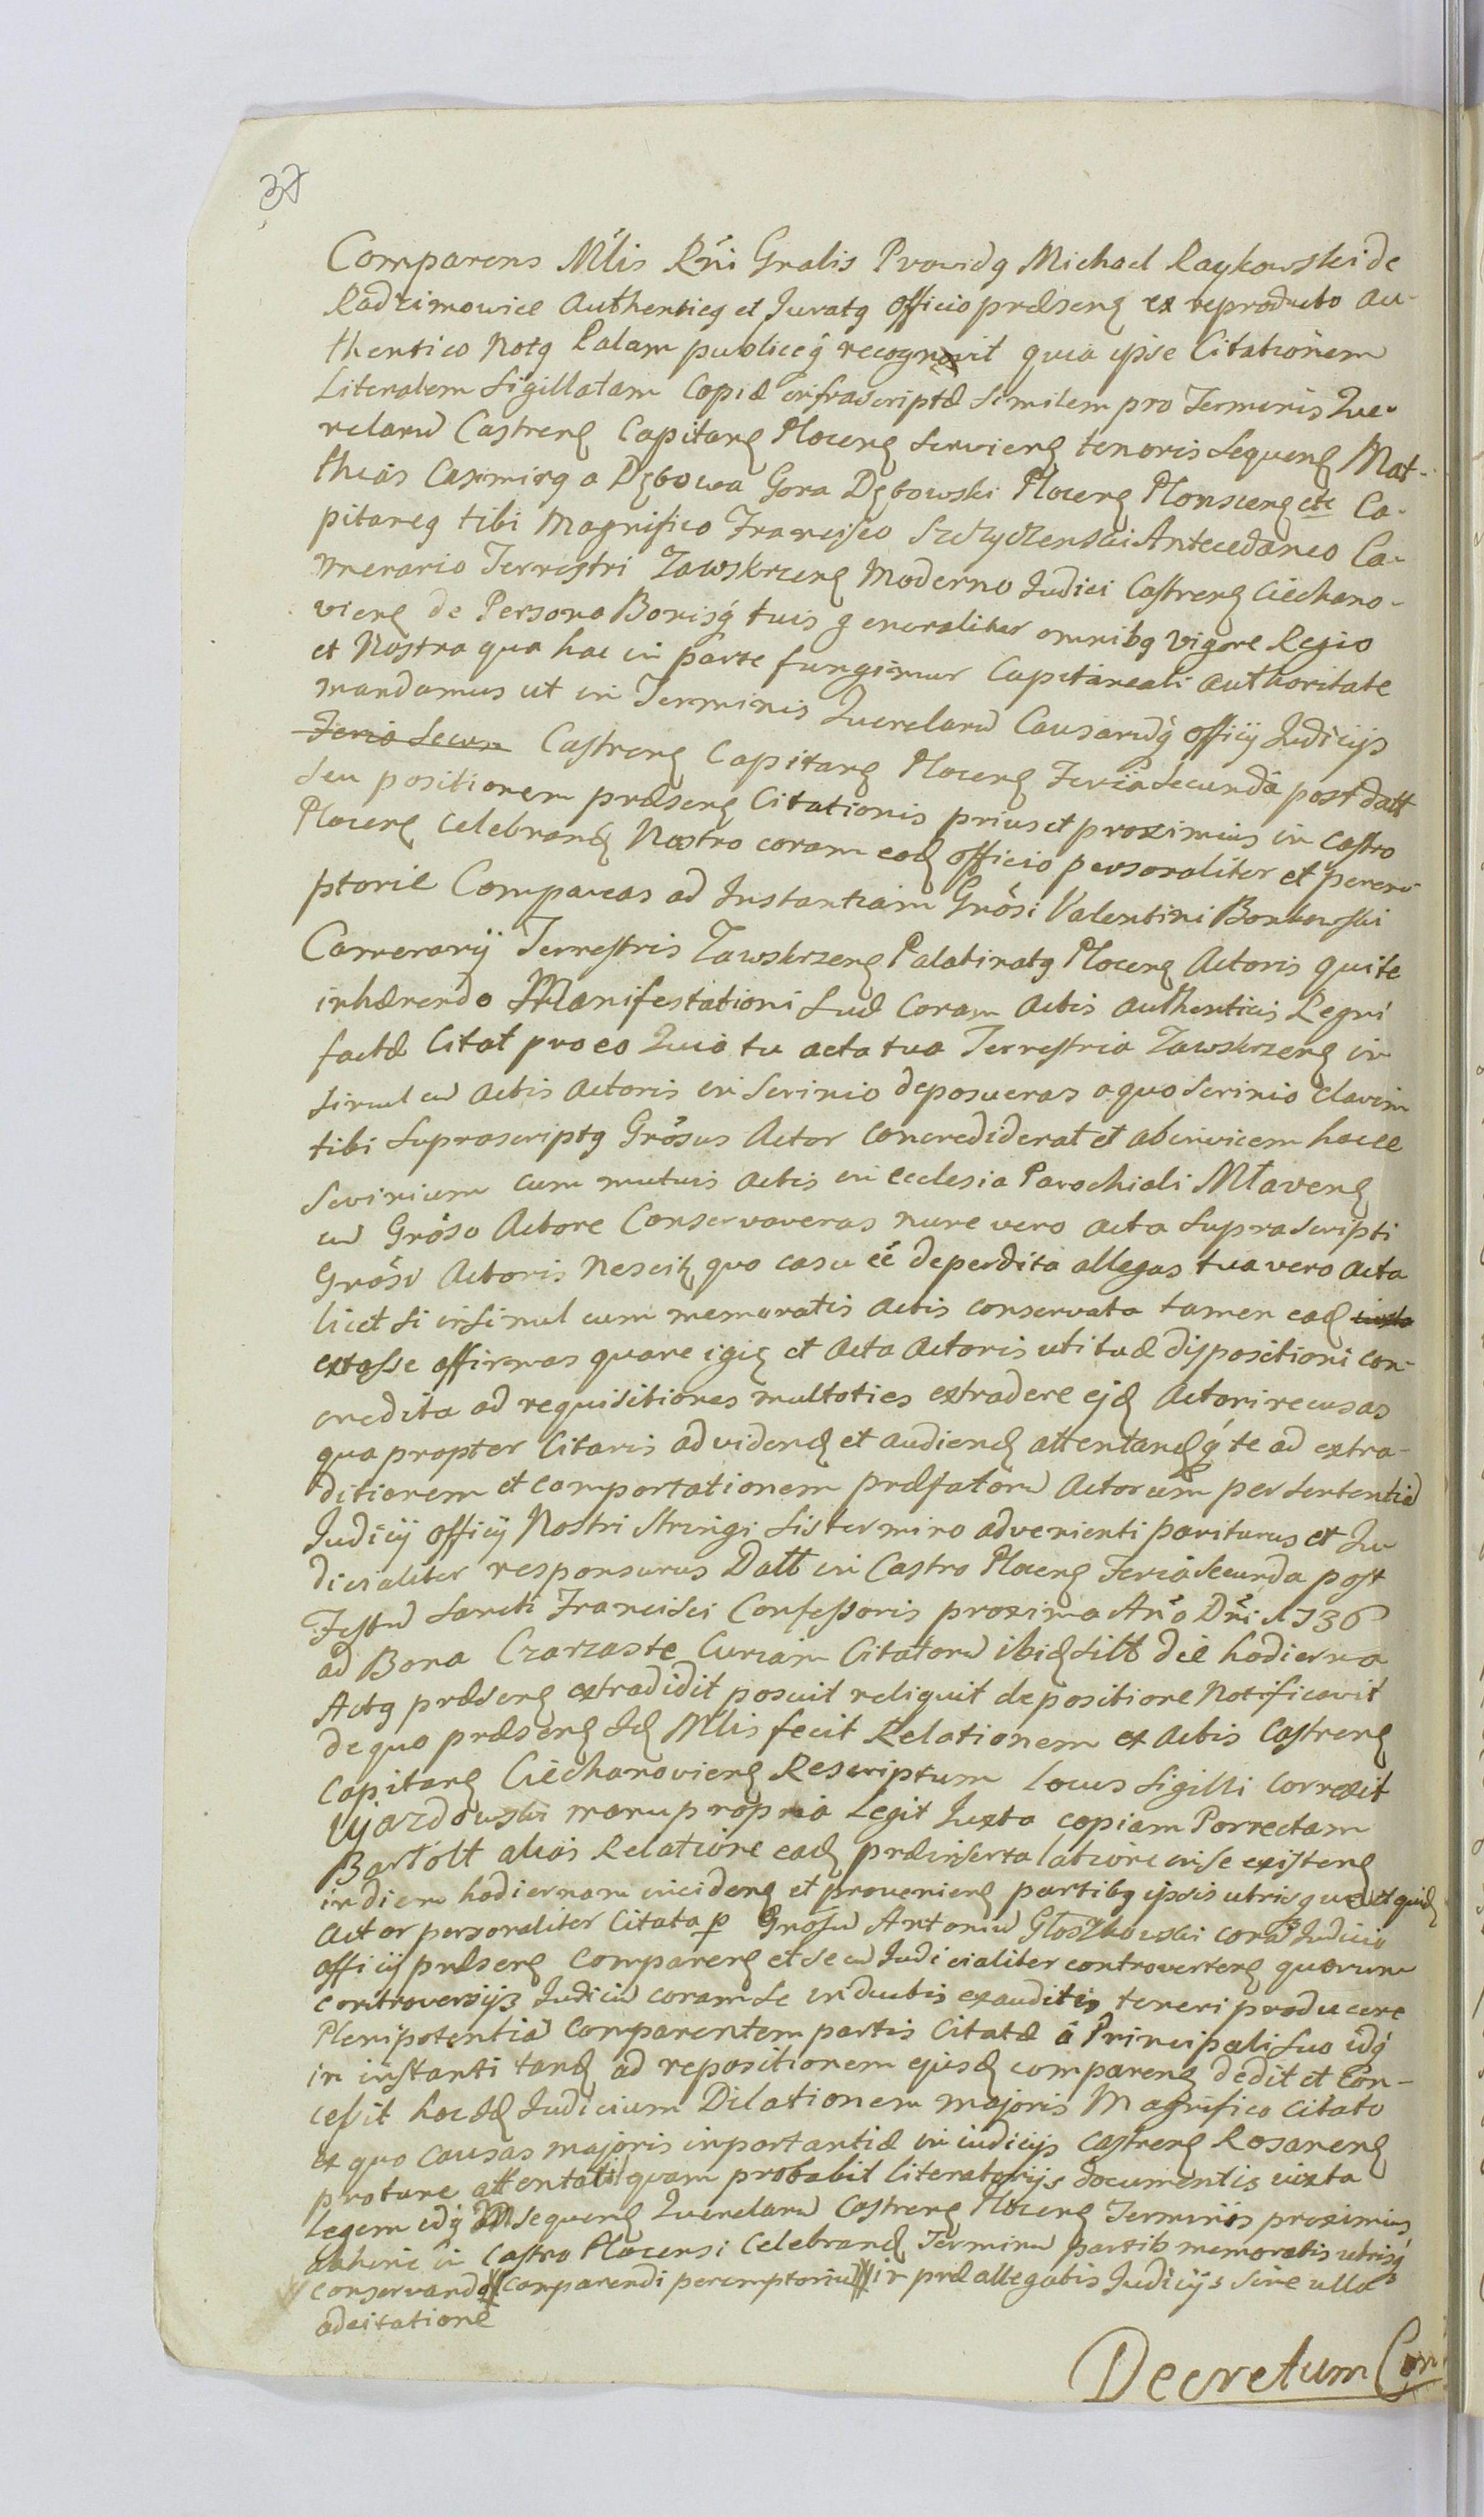 37
Comparens Mlis Rñi Gnalis Providq Michael Raykowski de
Radzimowice Authenticq et Juratq Officio præsenȩ ex reproducto au-
thentico Notq Palam publiceq́ recognovit quia ipse Citationem
Literalem Sigillatam Copiæ infrascriptæ Similem pro Terminis Que-
relarũ Castrenȩ Capitanȩ Plocenȩ Servienȩ tenoris Sequenȩ Mat-
thias Casimirq a Dębowa Gora Dębowski Plocenȩ Plonscenȩ etc Ca-
pitaneq tibi Magnifico Francisco Szczyczenski Antecedaneo Ca-
merario Terrestri Zawskrzenȩ Moderno Judici Castrenȩ Ciechano-
vienȩ de Persona Bonisq́ tuis generaliter omnibq vigore Regio
et Nostra qua hac in parte fungimur Capitaneali authoritate
mandamus ut in Terminis Querelarũ Causarũq́ officij Judicijs
Feria Secun Castrenȩ Capitanȩ Plocenȩ Feria Secunda post datt
seu positionem præsenȩ Citationis prius et proximius in Castro
Plocenȩ celebranȩ Nostro coram eodȩ officio personaliter et perem-
ptorie Compareas ad Instantiam Grõsi Valentini Bonkowski
Camerarij Terrestris Zawskrzenȩ Palatinatq Plocenȩ Actoris qui te
inhærendo Manifestationi Suæ Coram Actis authenticis Regni
factæ Citat pro eo Quia tu acta tua Terrestria Zawskrzenȩ in
simul cũ Actis Actoris in Scrinio deposueras a quo Scrinio Clavim
tibi Suprascriptq Grõsus Actor concrediderat et abinvicem hocce
Scrinium cum mutuis actis in Ecclesia Parochiali Mlavenȩ
cũ Grõso Actore Conservaveras nunc vero acta Suprascripti
Grõsi Actoris nescitȩ quo casu eẽ deperdita allegas tua vero acta
licet si insimul cum memoratis actis conservata tamen eadȩ iuxta
extasse affirmas quare igiȩ et Acta Actoris uti tuæ dispositioni con-
credita ad requisitiones multoties extradere ejdȩ Actori recusas
qua propter Citaris ad videnȩ et audienȩ attentanȩq́ te ad extra-
ditionem et comportationem præfatorũ Actorum per Sententiã
Judicij officij Nostri Stringi Sis termino advenienti pariturus et Ju
dicialiter responsurus Datt in Castro Plocenȩ Feria Secunda post
Festũ Sancti Francisci Confessoris proxima Año Dñi 1736
ad Bona Czarzaste Curiam Citatorũ ibidȩ Sitt die hodierna
Actq præsenȩ extradidit posuit reliquit depositione Notificavit
de quo præsenȩ Idȩ Mlis fecit Relationem ex actis Castrenȩ
Capitanȩ Ciechanovienȩ Rescriptum Locus Sigilli Correxit
Ujazdowski manu propria Legit Juxta copiam Porrectam
Bartolt alias Relatione eadȩ præinserta latiore in se existenȩ
in diem hodiernam incidenȩ et provenienȩ partibq ipsis utrisque et quidȩ
Actor personaliter Citata p Grosũ Antoniũ Gloszkowski corã Judicio
officij præsenȩ comparenȩ et se cũ Judicialiter controvertenȩ quarum
controversijs Judiciũ coram se inductis exauditis teneri producere
Plenipotentiã Comparentem partis Citatæ â Principali Suo idq́
in instanti tandȩ ad repositionem ejusdȩ comparenȩ dedit et Con-
cessit hoc Idȩ Judicium Dilationem majoris Magnifico citato
ex quo causas majoris inportantiæ in iudicijs Castrenȩ Rosanenȩ
pro tunc attentat quam probabit literatorijs documentis iuxta
legem idq́ in Sequenȩ Querelarũ Castrenȩ Plocenȩ Terminis proximius
abhinc in Castro Plocensi Celebranȩ Terminũ partib memoratis utrisq́
conservando comparendi peremptoriũ in præallegatis Judicijs Sine ulla
adcitatione
Decretum Con